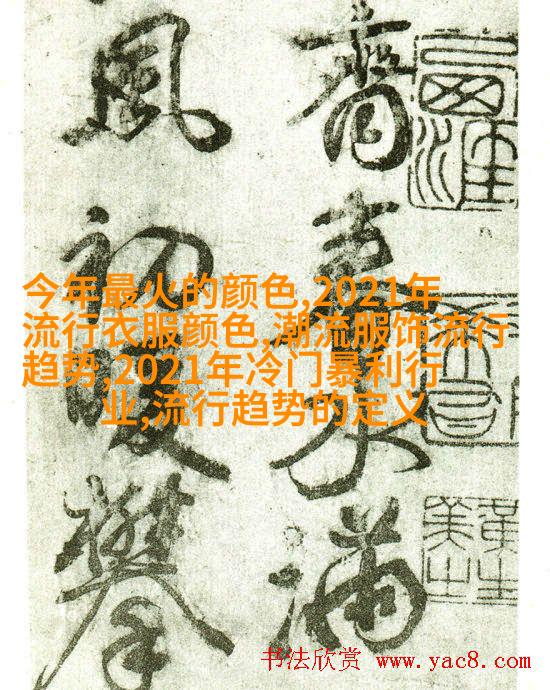 水滿
風初暖攀
今年最火的颜色,2021年
流行衣服颜色,潮流服饰流行
趋势,2021年冷门暴利行
业,流行趋势的定义
书法欣赏 www.yac8.com